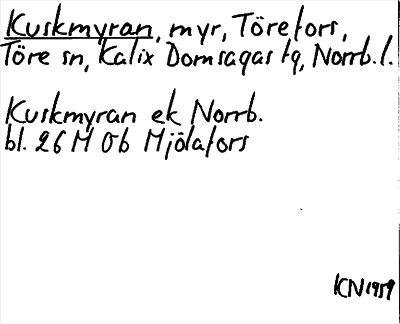 Kuskmyran, myr, Törefors,
Töre sn, Kalix Domsagas tg, Norrb. l.
Kuskmyran ek Norrb.
bl. 26 M 0b Mjölafors
KN 1959